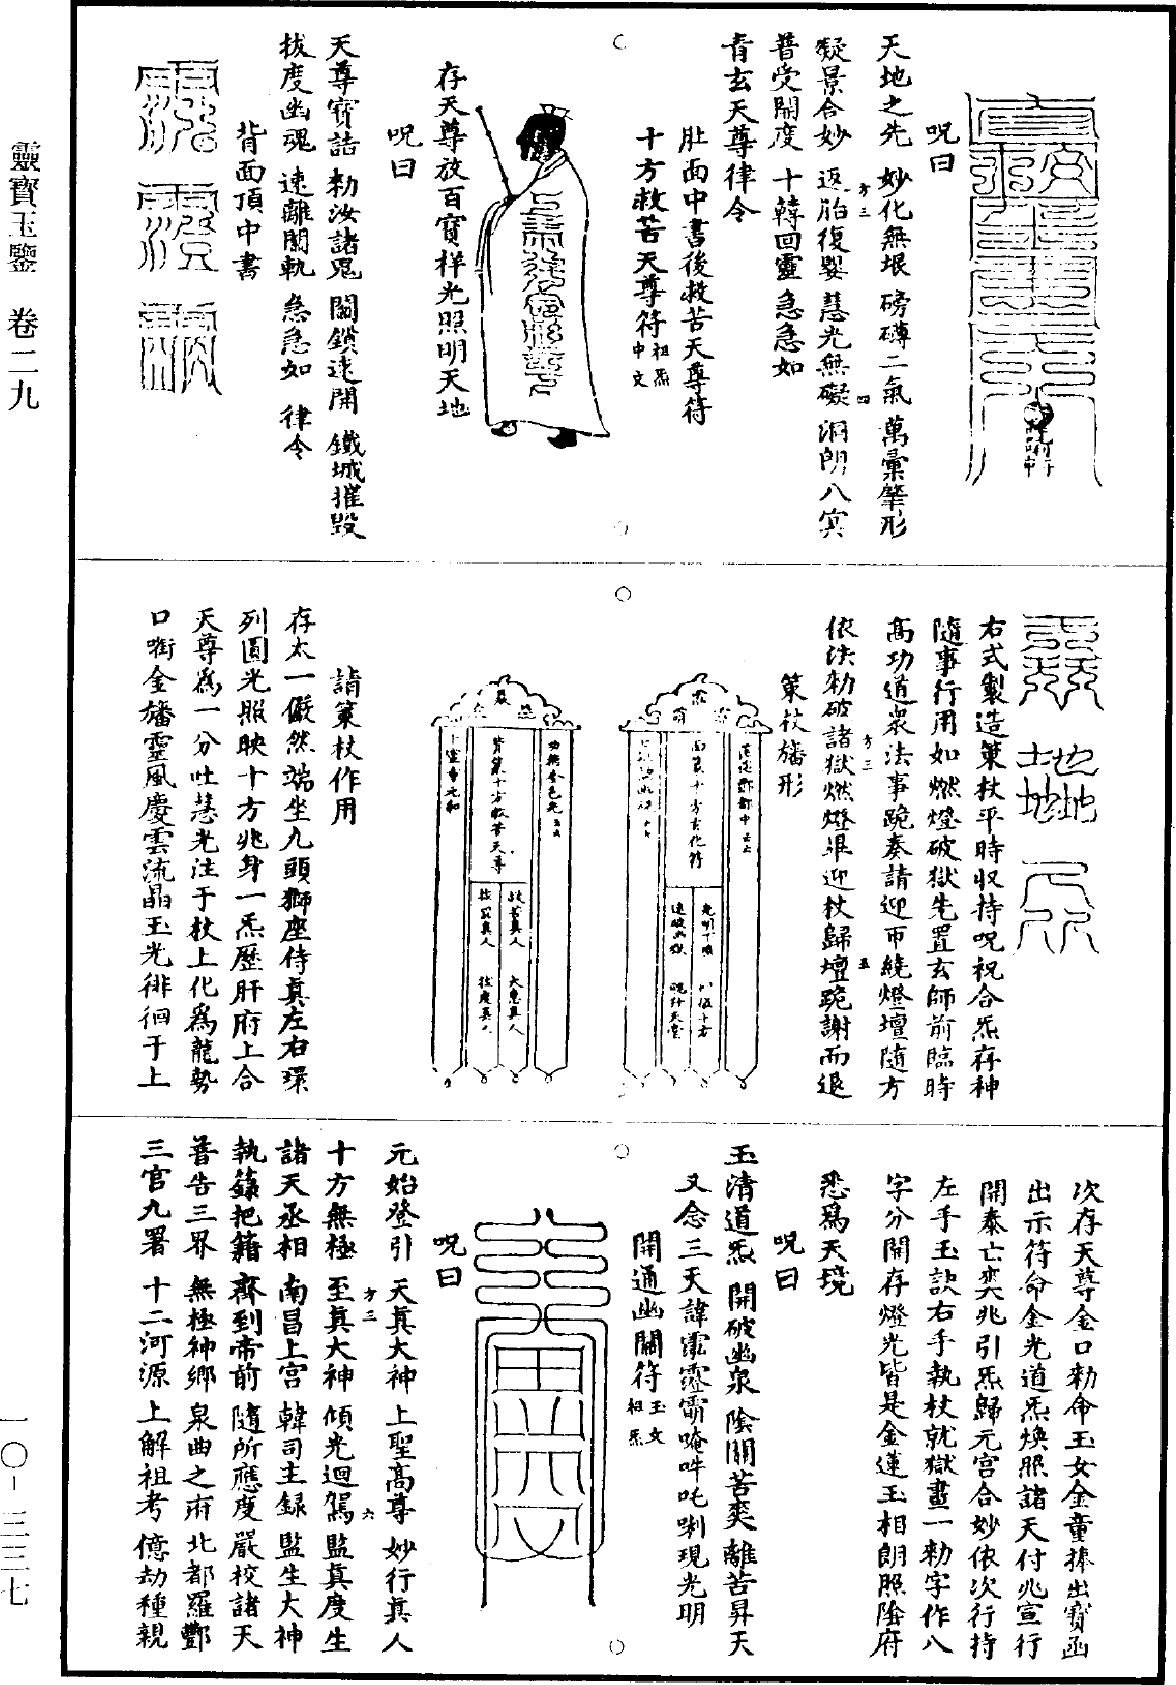 靈寶玉鑒 卷二九
一〇-三三七
呪曰
天地之先 妙化無垠 磅礴二氣 萬彙肇形
凝景合妙 返胎復嬰 慧光無礙 洞朗八冥
普受開度 十轉回靈 急急如
青玄天尊律令
肚面中書後救苦天尊符
十方救苦天尊符祖炁中文
存天尊放百寶祥光照明天地
呪曰
天尊寶誥 勑汝諸鬼 關鎖速開 鐵城摧毀
拔度幽魂 速離關軌 急急如 律令
背面頂中書
右式製造策杖平時収持呪祝合炁存神
隨事行用如燃燈破獄先置玄師前臨時
高功道衆法事跪奏請迎帀繞燈壇隨方
依決勑破諸獄燃燈畢迎杖歸壇跪謝而退
策杖旛形
救苦真人 大惠真人
請策杖作用
存太一儼然端坐九頭獅座侍真左右環
列圓光照映十方兆身一炁歷肝府上合
天尊爲一分吐慧光注于杖上化爲龍勢
口銜金旛靈風慶雲流晶玉光徘徊于上
次存天尊金口勑命玉女金童捧出寶函
出示符命金光道炁煥照諸天付兆宣行
開泰亡爽兆引炁歸元宫合妙依次行持
左手玉訣右手執杖就獄畫一勑字作八
字分開存燈光皆是金蓮玉相朗照陰府
悉爲天境
呪曰
玉清道炁 開破幽泉 陰關苦爽 離苦昇天
又念三天諱唵吽吒唎現光明
開通幽關符玉文祖炁
呪曰
元始登引 天真大神 上聖高尊 妙行真人
十方無極 至真大神 傾光迴駕 監真度生
諸天丞相 南昌上宫 韓司主録 監生大神
執籙把籍 齊到帝前 隨所應度 嚴校諸天
普告三界 無極神鄉 泉曲之府 北都羅酆
三官九署 十二河源 上解祖考 億劫種親